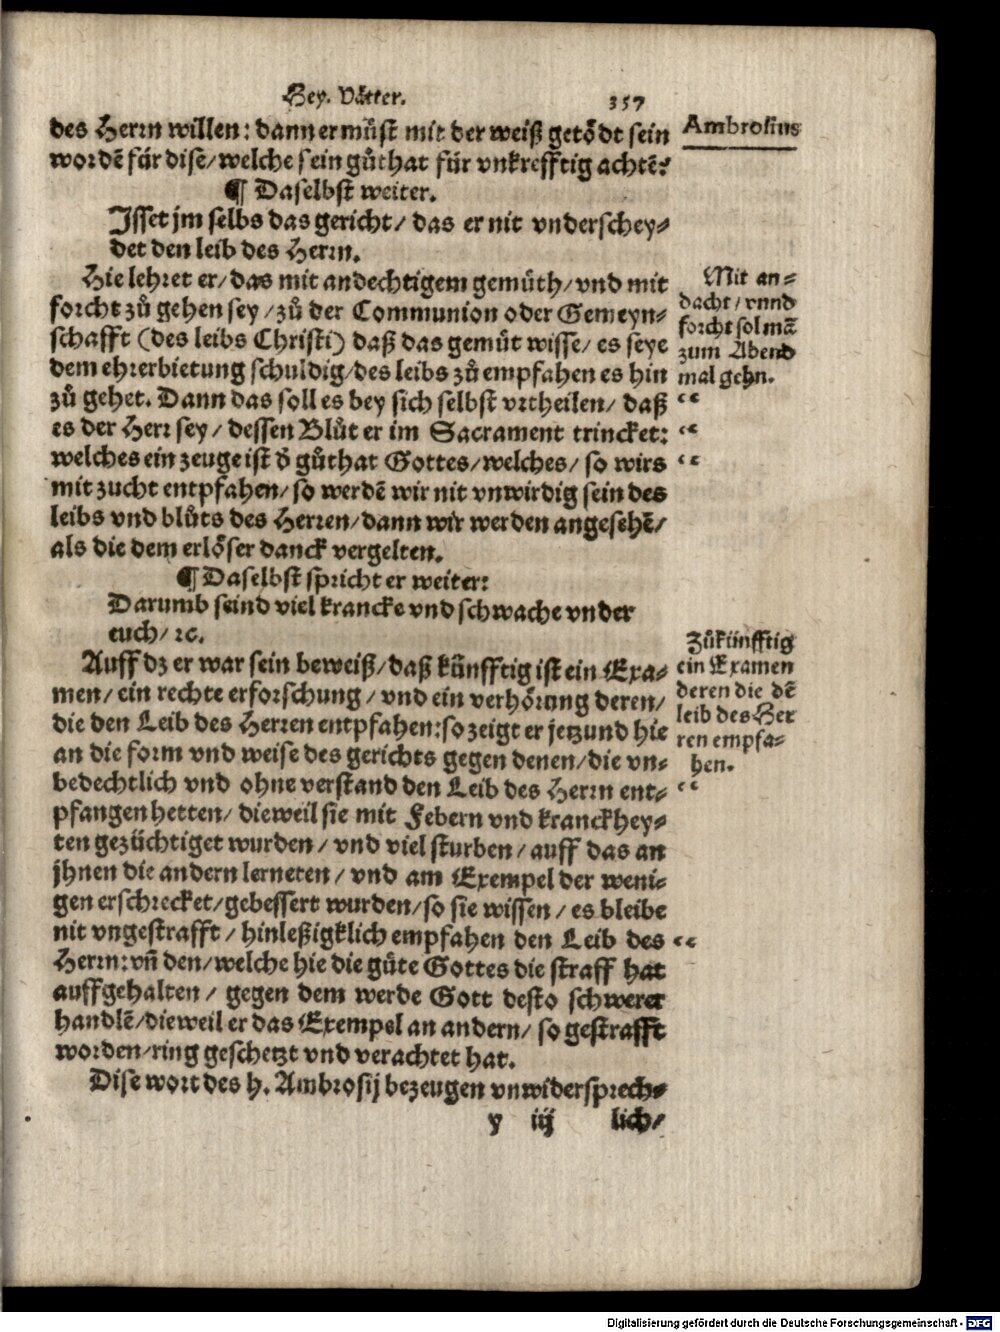 Hey. Våtter. 357
des Herrn willen: dann er müst mit der weiß getödt sein
wordē für dise/ welche sein gůthat für vnkrefftig achtē?
¶ Daselbst weiter.
Isset jm selbs das gericht/ das er nit vnderschey⸗
det den leib des Herrn.
Hie lehret er/ das mit andechtigem gemüth/ vnd mit
forcht zů gehen sey/ zů der Communion oder Gemeyn⸗
schafft (des leibs Christi) daß das gemüt wisse/ es seye
dem ehrerbietung schuldig/ des leibs zů empfahen es hin
zů gehet. Dann das soll es bey sich selbst vrtheilen/ daß
es der Herr sey/ dessen Blůt er im Sacrament trincket:
welches ein zeuge ist d̄ gůthat Gottes/ welches/ so wirs
mit zucht entpfahen/ so werdē wir nit vnwirdig sein des
leibs vnd blůts des Herren/ dann wir werden angesehē/
als die dem erlöser danck vergelten.
¶ Daselbst spricht er weiter:
Darumb seind viel krancke vnd schwache vnder
euch/ ꝛc.
Auff dz er war sein beweiß/ daß künfftig ist ein Exa⸗
men/ ein rechte erforschung/ vnd ein verhörung deren/
die den Leib des Herren entpfahen: so zeigt er jetzund hie
an die form vnd weise des gerichts gegen denen/ die vn⸗
bedechtlich vnd ohne verstand den Leib des Herrn ent⸗
pfangen hetten/ dieweil sie mit Febern vnd kranckhey⸗
ten gezüchtiget wurden/ vnd viel sturben/ auff das an
jhnen die andern lerneten/ vnd am Exempel der weni⸗
gen erschrecket/ gebessert wurden/ so sie wissen/ es bleibe
nit vngestrafft/ hinleßigklich empfahen den Leib des
Herrn: vñ den/ welche hie die güte Gottes die straff hat
auffgehalten/ gegen dem werde Gott desto schwerer
handlē/ dieweil er das Exempel an andern/ so gestrafft
worden/ ring geschetzt vnd verachtet hat.
Dise wort des h. Ambrosij bezeugen vnwidersprech⸗
y iij lich/
Ambrosius
Mit an⸗
dacht/ vnnd
forcht sol mā
zum Abend
mal gehn.
“
“
“
Zůkünfftig
ein Examen
deren die dē
leib des Her
ren empfa⸗
hen.
“
“
Digitalisierung gefördert durch die Deutsche Forschungsgemeinschaft - DFG